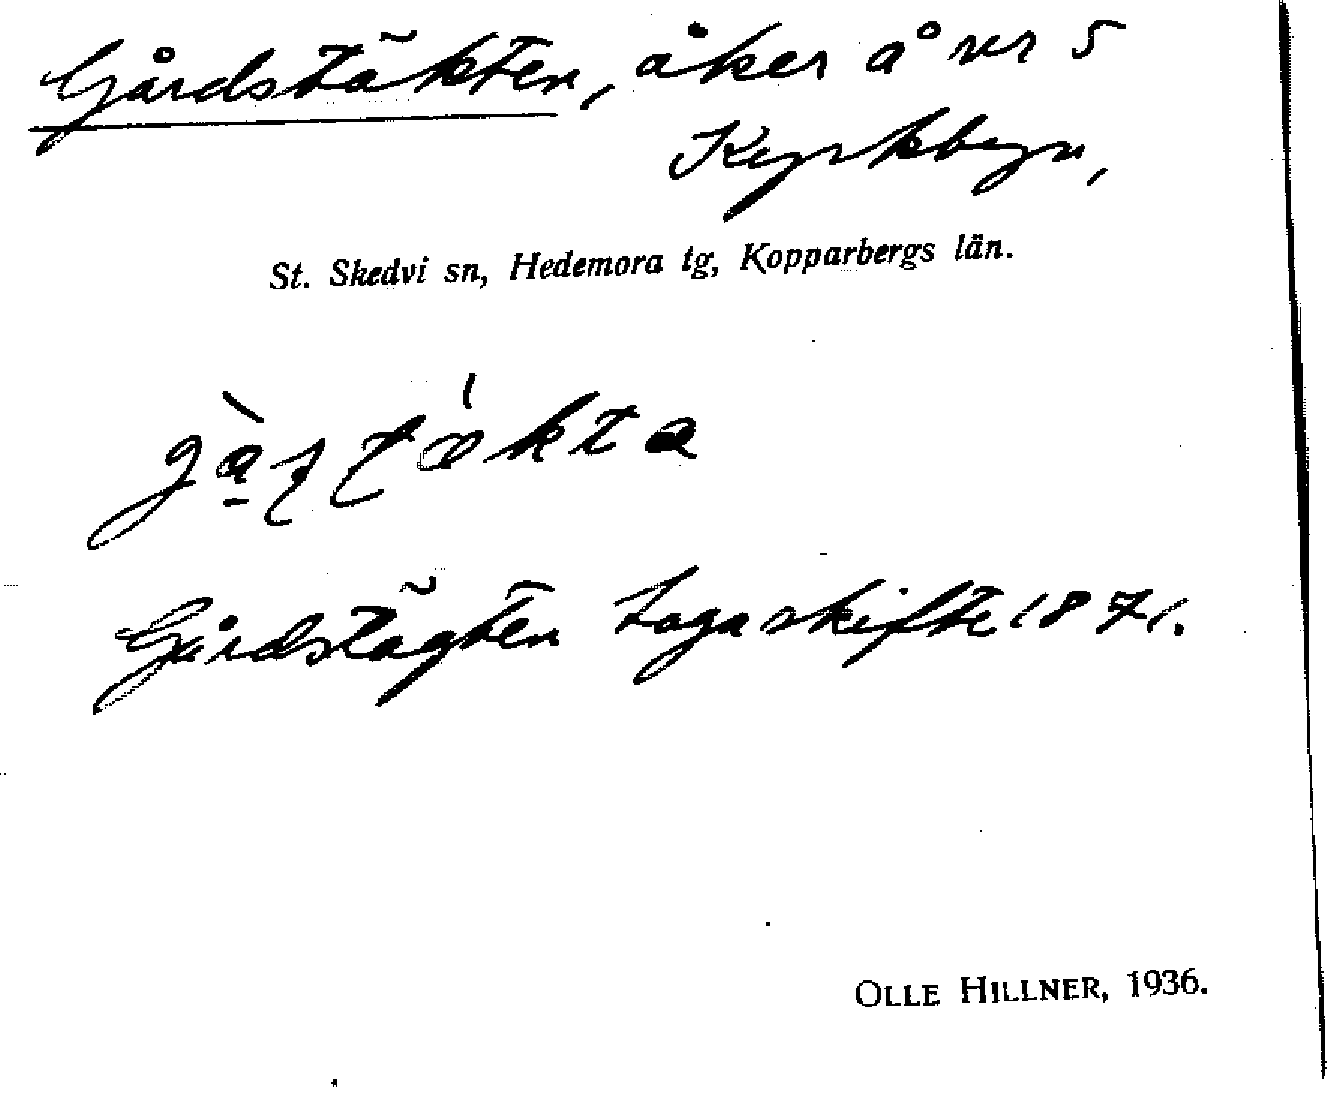 Gårdstäkten, åker å nr 5
Kyrkbyn,
St. Skedvi sn, Hedemora tg, Kopparbergs län.
Gårdstägten Laga skifte 1871.
OLLE HILLNER, 1936.